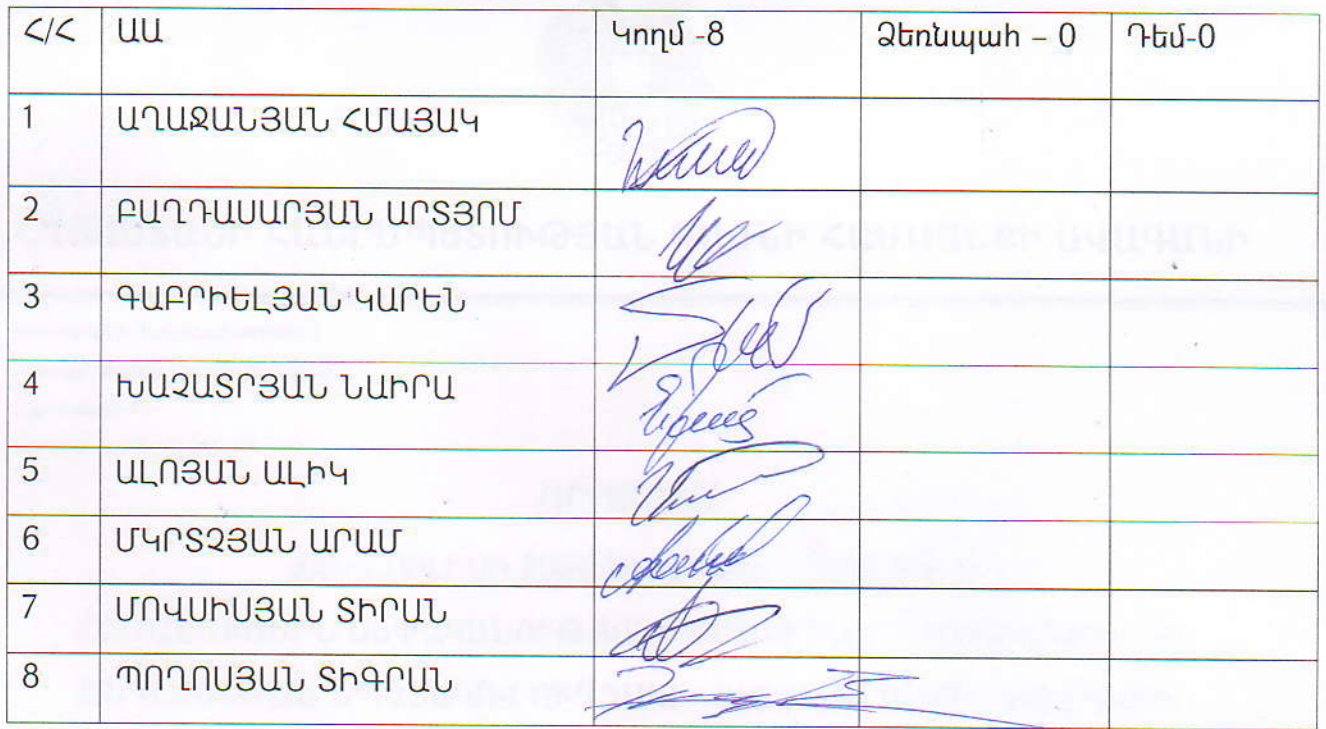 Հ/Հ ԱԱ Կողմ -8 Ձեռնպահ – 0 Դեմ-0
1 ԱՂԱՋԱՆՅԱՆ ՀՄԱՅԱԿ
2 ԲԱՂԴԱՍԱՐՅԱՆ ԱՐՏՅՈՄ
3 ԳԱԲՐԻԵԼՅԱՆ ԿԱՐԵՆ
4 ԽԱՉԱՏՐՅԱՆ ՆԱԻՐԱ
5 ԱԼՈՅԱՆ ԱԼԻԿ
6 ՄԿՐՏՉՅԱՆ ԱՐԱՄ
7 ՄՈՎՍԻՍՅԱՆ ՏԻՐԱՆ
8 ՊՈՂՈՍՅԱՆ ՏԻԳՐԱՆ